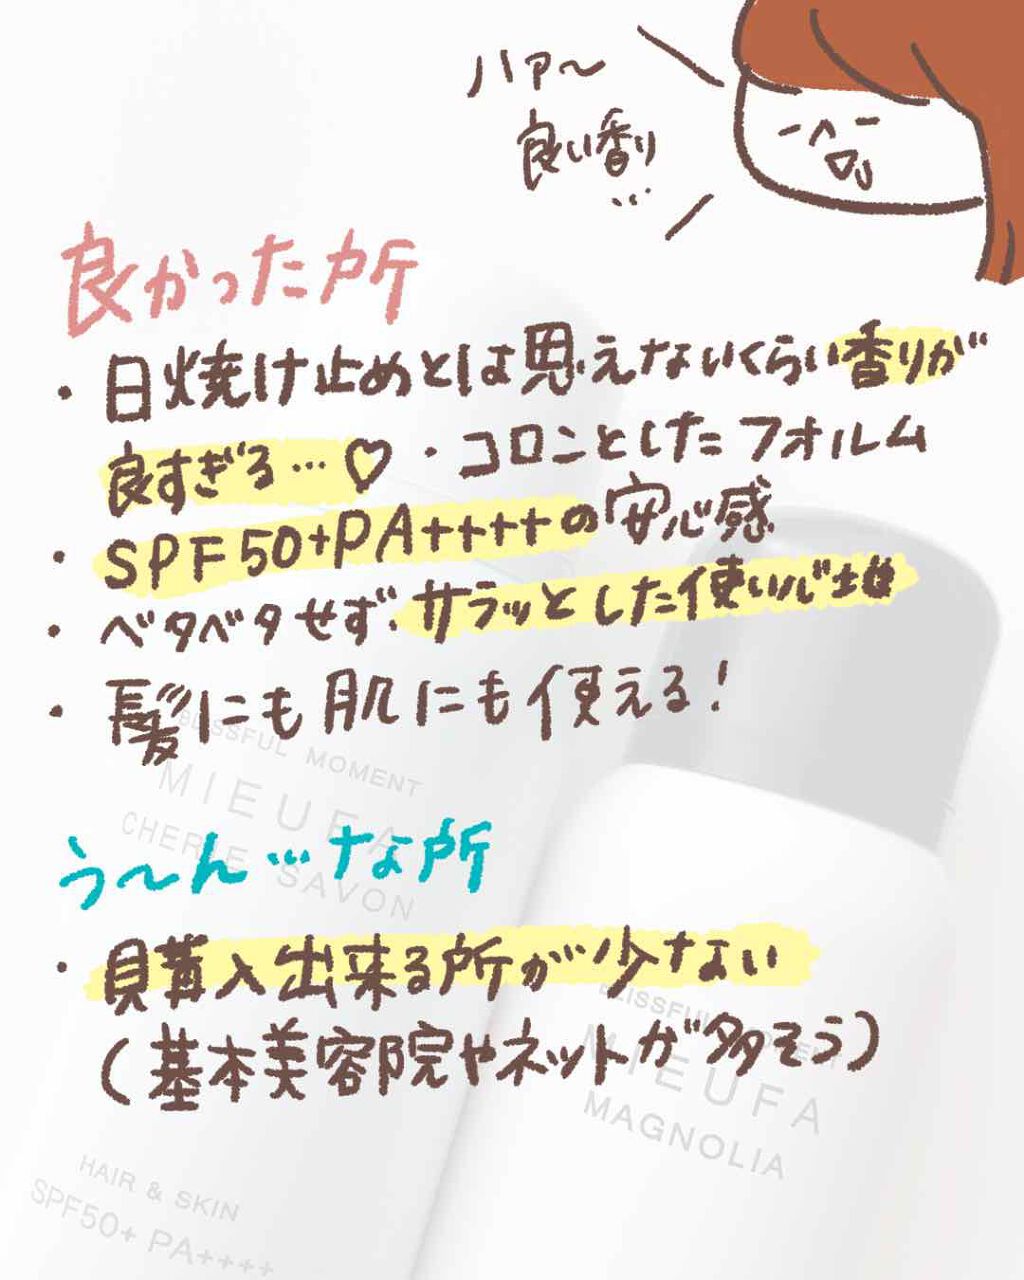 ハァ〜
良い香り
…
良かった所
・日焼け止めとは思えないくらい香りが
良すぎる…♡ ・コロンとしたフォルム
・SPF50+PA++++の安心感
・ベタベタせず、サラッとした使い心地
・髪にも肌にも使える!
BLISSFUL MOMENT
MIEUFA
CHERIE SAVON
う〜ん…な所
・購入出来る所が少ない
(基本美容院やネットが多そう)
BLISSFUL MOMENT
MIEUFA
MAGNOLIA
HAIR & SKIN
SPF50+ PA++++